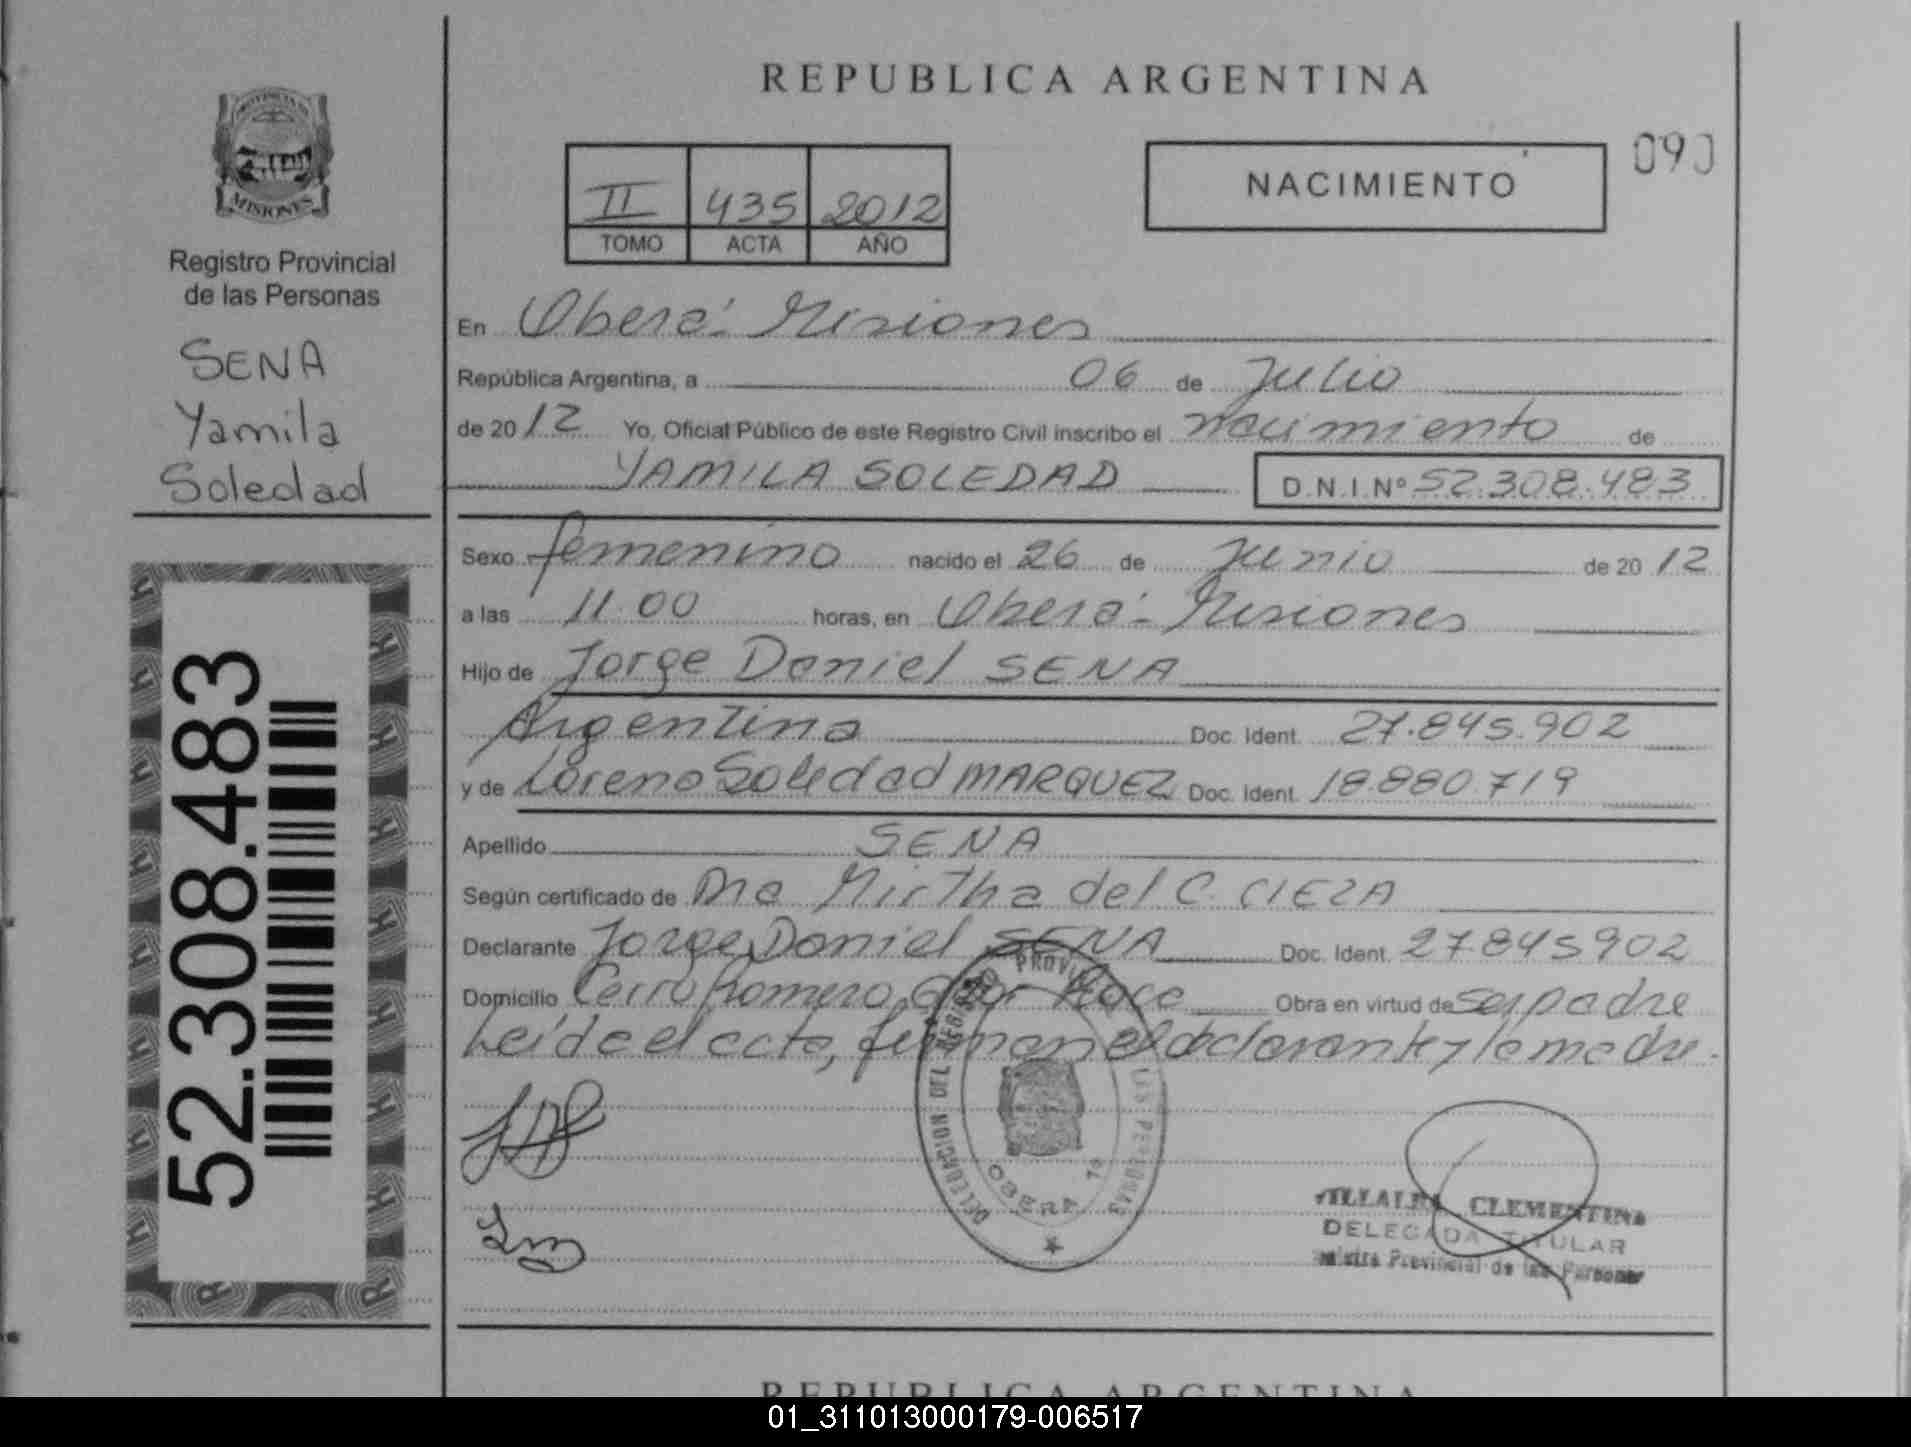 REPUBLICA ARGENTINA
090
NACIMIENTO
II 435 2012
TOMO ACTA AÑO
PROVINCIA DE
MISIONES
Registro Provincial
de las Personas
SENA
Yamila
Soledad
52.308.483
En Oberá - Misiones
República Argentina, a 06 de Julio
de 2012 Yo, Oficial Público de este Registro Civil inscribo el nacimiento de
YAMILA SOLEDAD D.N.I.Nº 52.308.483
Sexo femenino nacido el 26 de Junio de 2012
a las 11.00 horas, en Oberá - Misiones
Hijo de Jorge Daniel SENA
Argentina Doc. Ident. 27.845.902
y de Lorena Soledad MARQUEZ Doc. Ident. 18.880.719
Apellido SENA
Según certificado de Dra Mirtha del C. CIEZA
Declarante Jorge Daniel SENA Doc. Ident. 27845902
Domicilio Cerro Romero, Roca Obra en virtud de ser padre
Leída el acta, firman el declarante y la madre.
DELEGACION DEL REGISTRO PROVINCIAL DE LAS PERSONAS
OBERA 1ª
VILLALBA CLEMENTINA
DELEGADA TITULAR
Registro Provincial de las Personas
REPUBLICA ARGENTINA
01_311013000179-006517